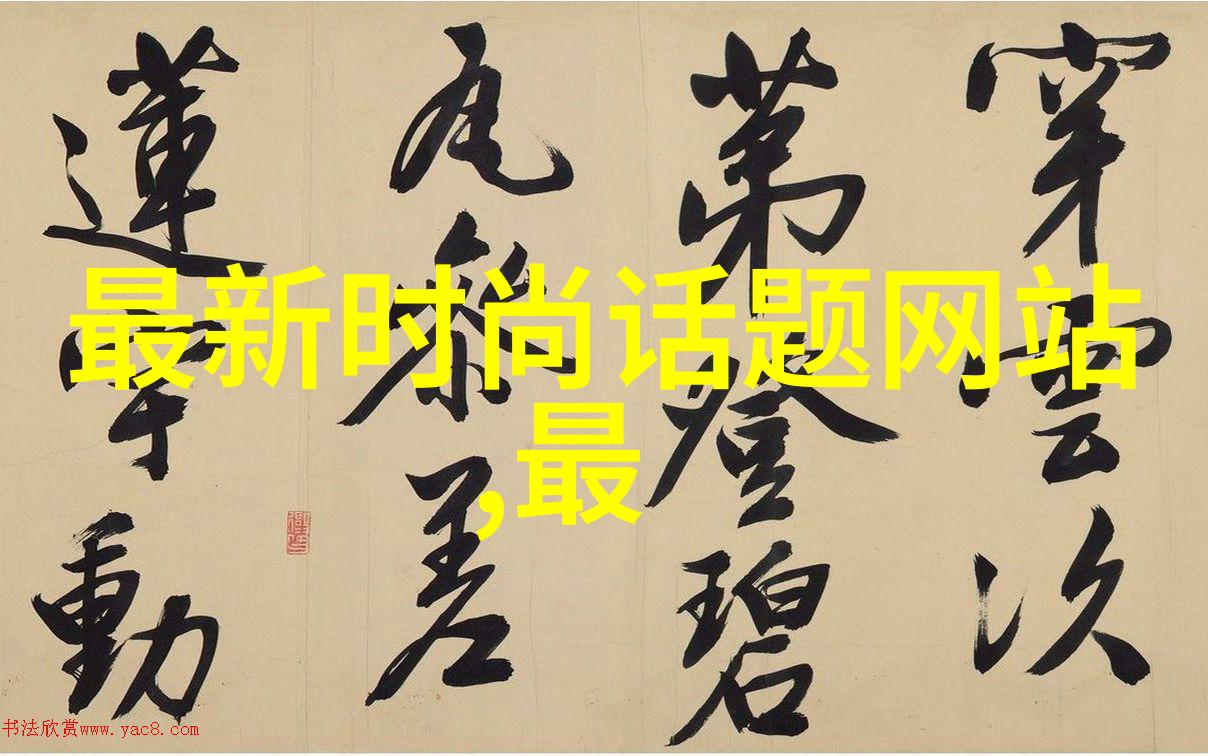 穿雲次
第登碧
瓦參差
蓮宇動
最新时尚话题网站
,最
书法欣赏www.yac8.com